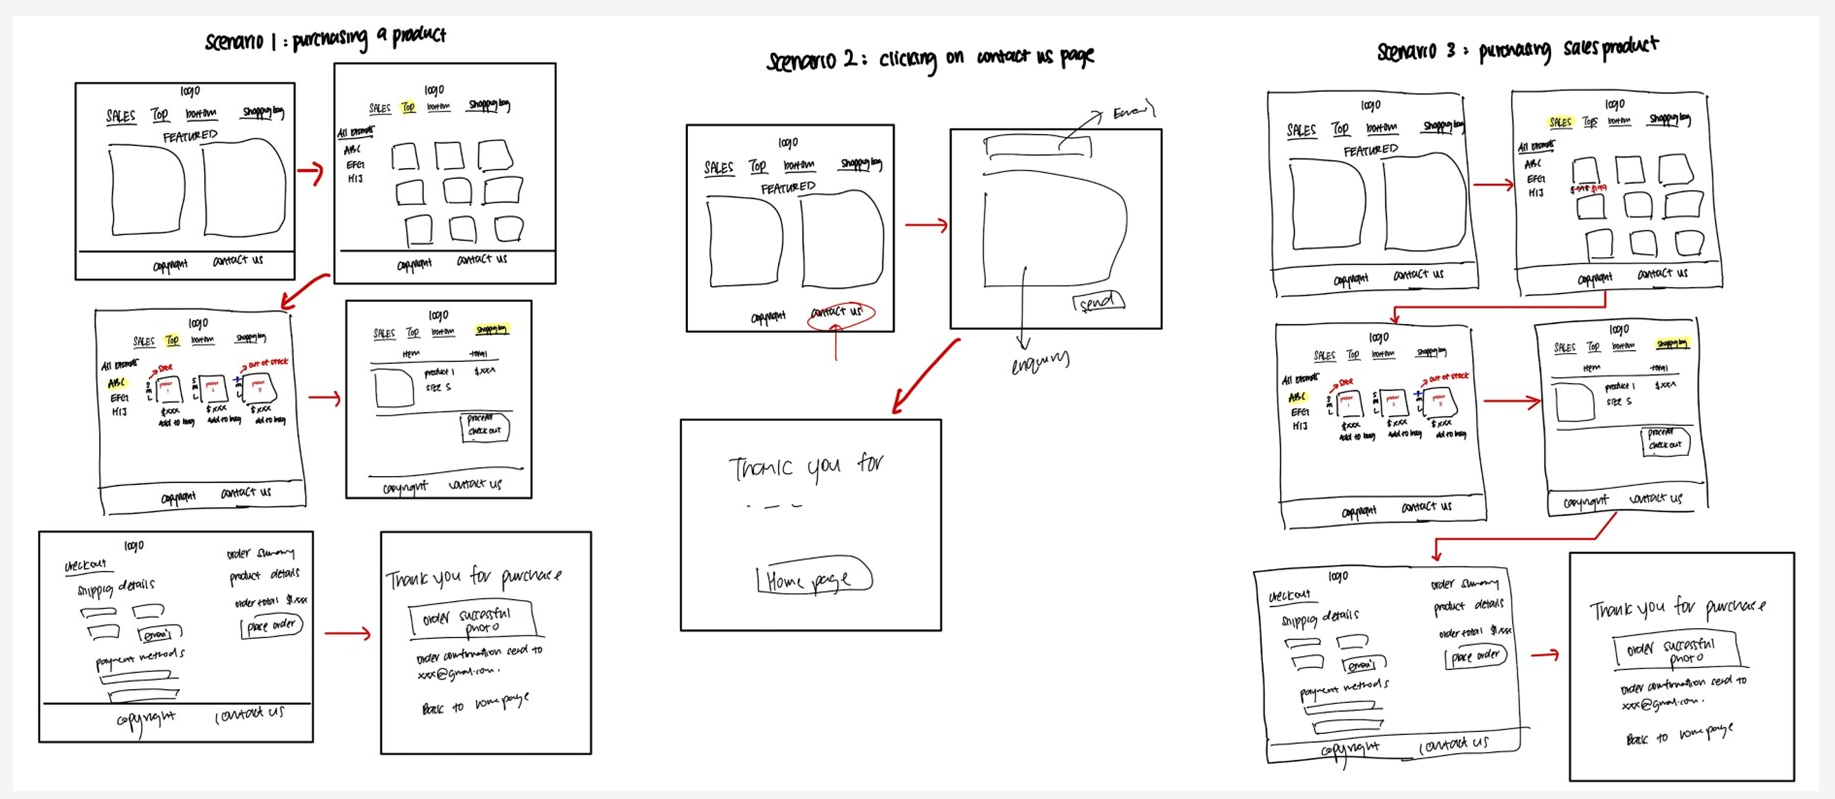 Scenario 1: purchasing a product
logo
SALES Top bottom Shopping bag
FEATURED
copyright contact us
logo
SALES Top bottom Shopping bag
All brands
ABC
EFG
HIJ
copyright contact us
logo
SALES Top bottom Shopping bag
All brands
size
out of stock
ABC
EFG
HIJ
S
M
L
S
M
L
M
L
1
2
3
$xxx $xxx $xxx
Add to bag Add to bag Add to bag
copyright contact us
logo
SALES Top bottom Shopping bag
item total
product 1 $xxx
size S
proceed
check out
copyright contact us
logo
checkout
shippig details
email
payment methods
order summary
product details
order total $xxx
place order
copyright contact us
Thank you for purchase
order successful
photo
order confirmation send to
xxx@gmail.com.
Back to homepage
Scenario 2: clicking on contact us page
logo
SALES Top bottom Shopping bag
FEATURED
copyright contact us
Email
send
enquiry
Thank you for
- - -
Home page
Scenario 3: purchasing sales product
logo
SALES Top bottom Shopping bag
FEATURED
copyright contact us
logo
SALES Tops bottom Shopping bag
All brands
ABC
EFG
HIJ
copyright contact us
logo
SALES Top bottom Shopping bag
All brands
size
out of stock
ABC
EFG
HIJ
S
M
L
S
M
L
M
L
$xxx $xxx $xxx
Add to bag Add to bag Add to bag
copyright contact us
logo
SALES Top bottom Shopping bag
item total
product 1 $xxx
size S
proceed
check out
copyright contact us
logo
checkout
shippig details
email
payment methods
order summary
product details
order total $xxx
place order
copyright contact us
Thank you for purchase
order successful
photo
order confirmation send to
xxx@gmail.com.
Back to homepage